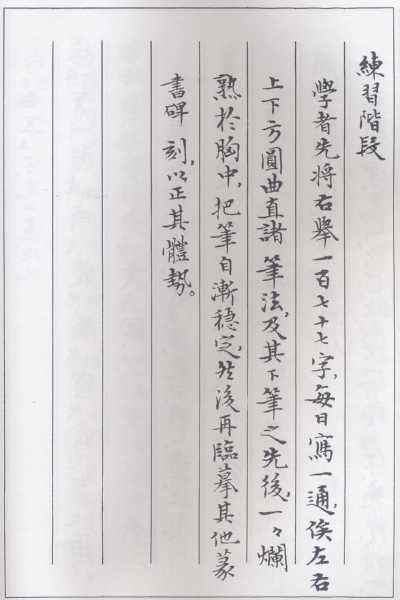 練習階段
學者先將右舉一百七十七字，每日寫一通，俟左右
上下方圓曲直諸筆法，及其下筆之先後，一々爛
熟於胸中，把筆自漸穩定，然後再臨摹其他篆
書碑刻，以正其體勢。